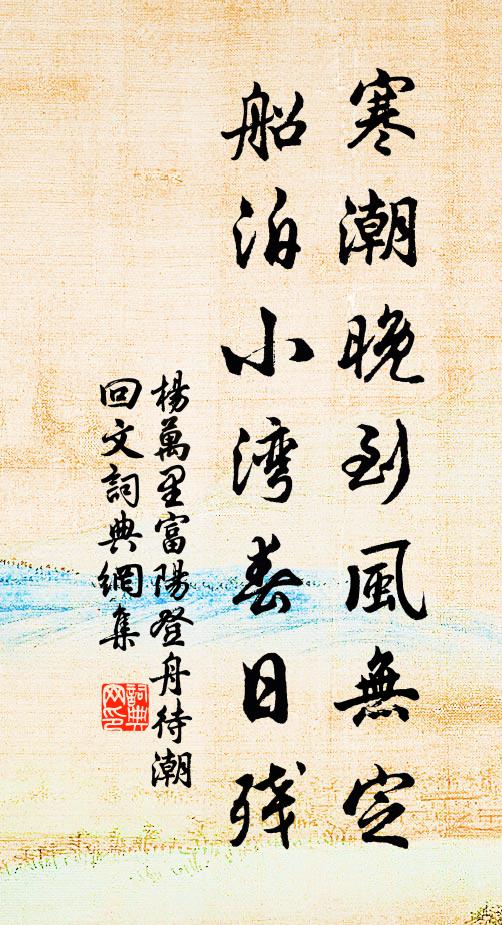 寒潮晚到風無定
船泊小湾春日残
楊萬里富陽登舟待潮
回文詞典網集
詞典
网印